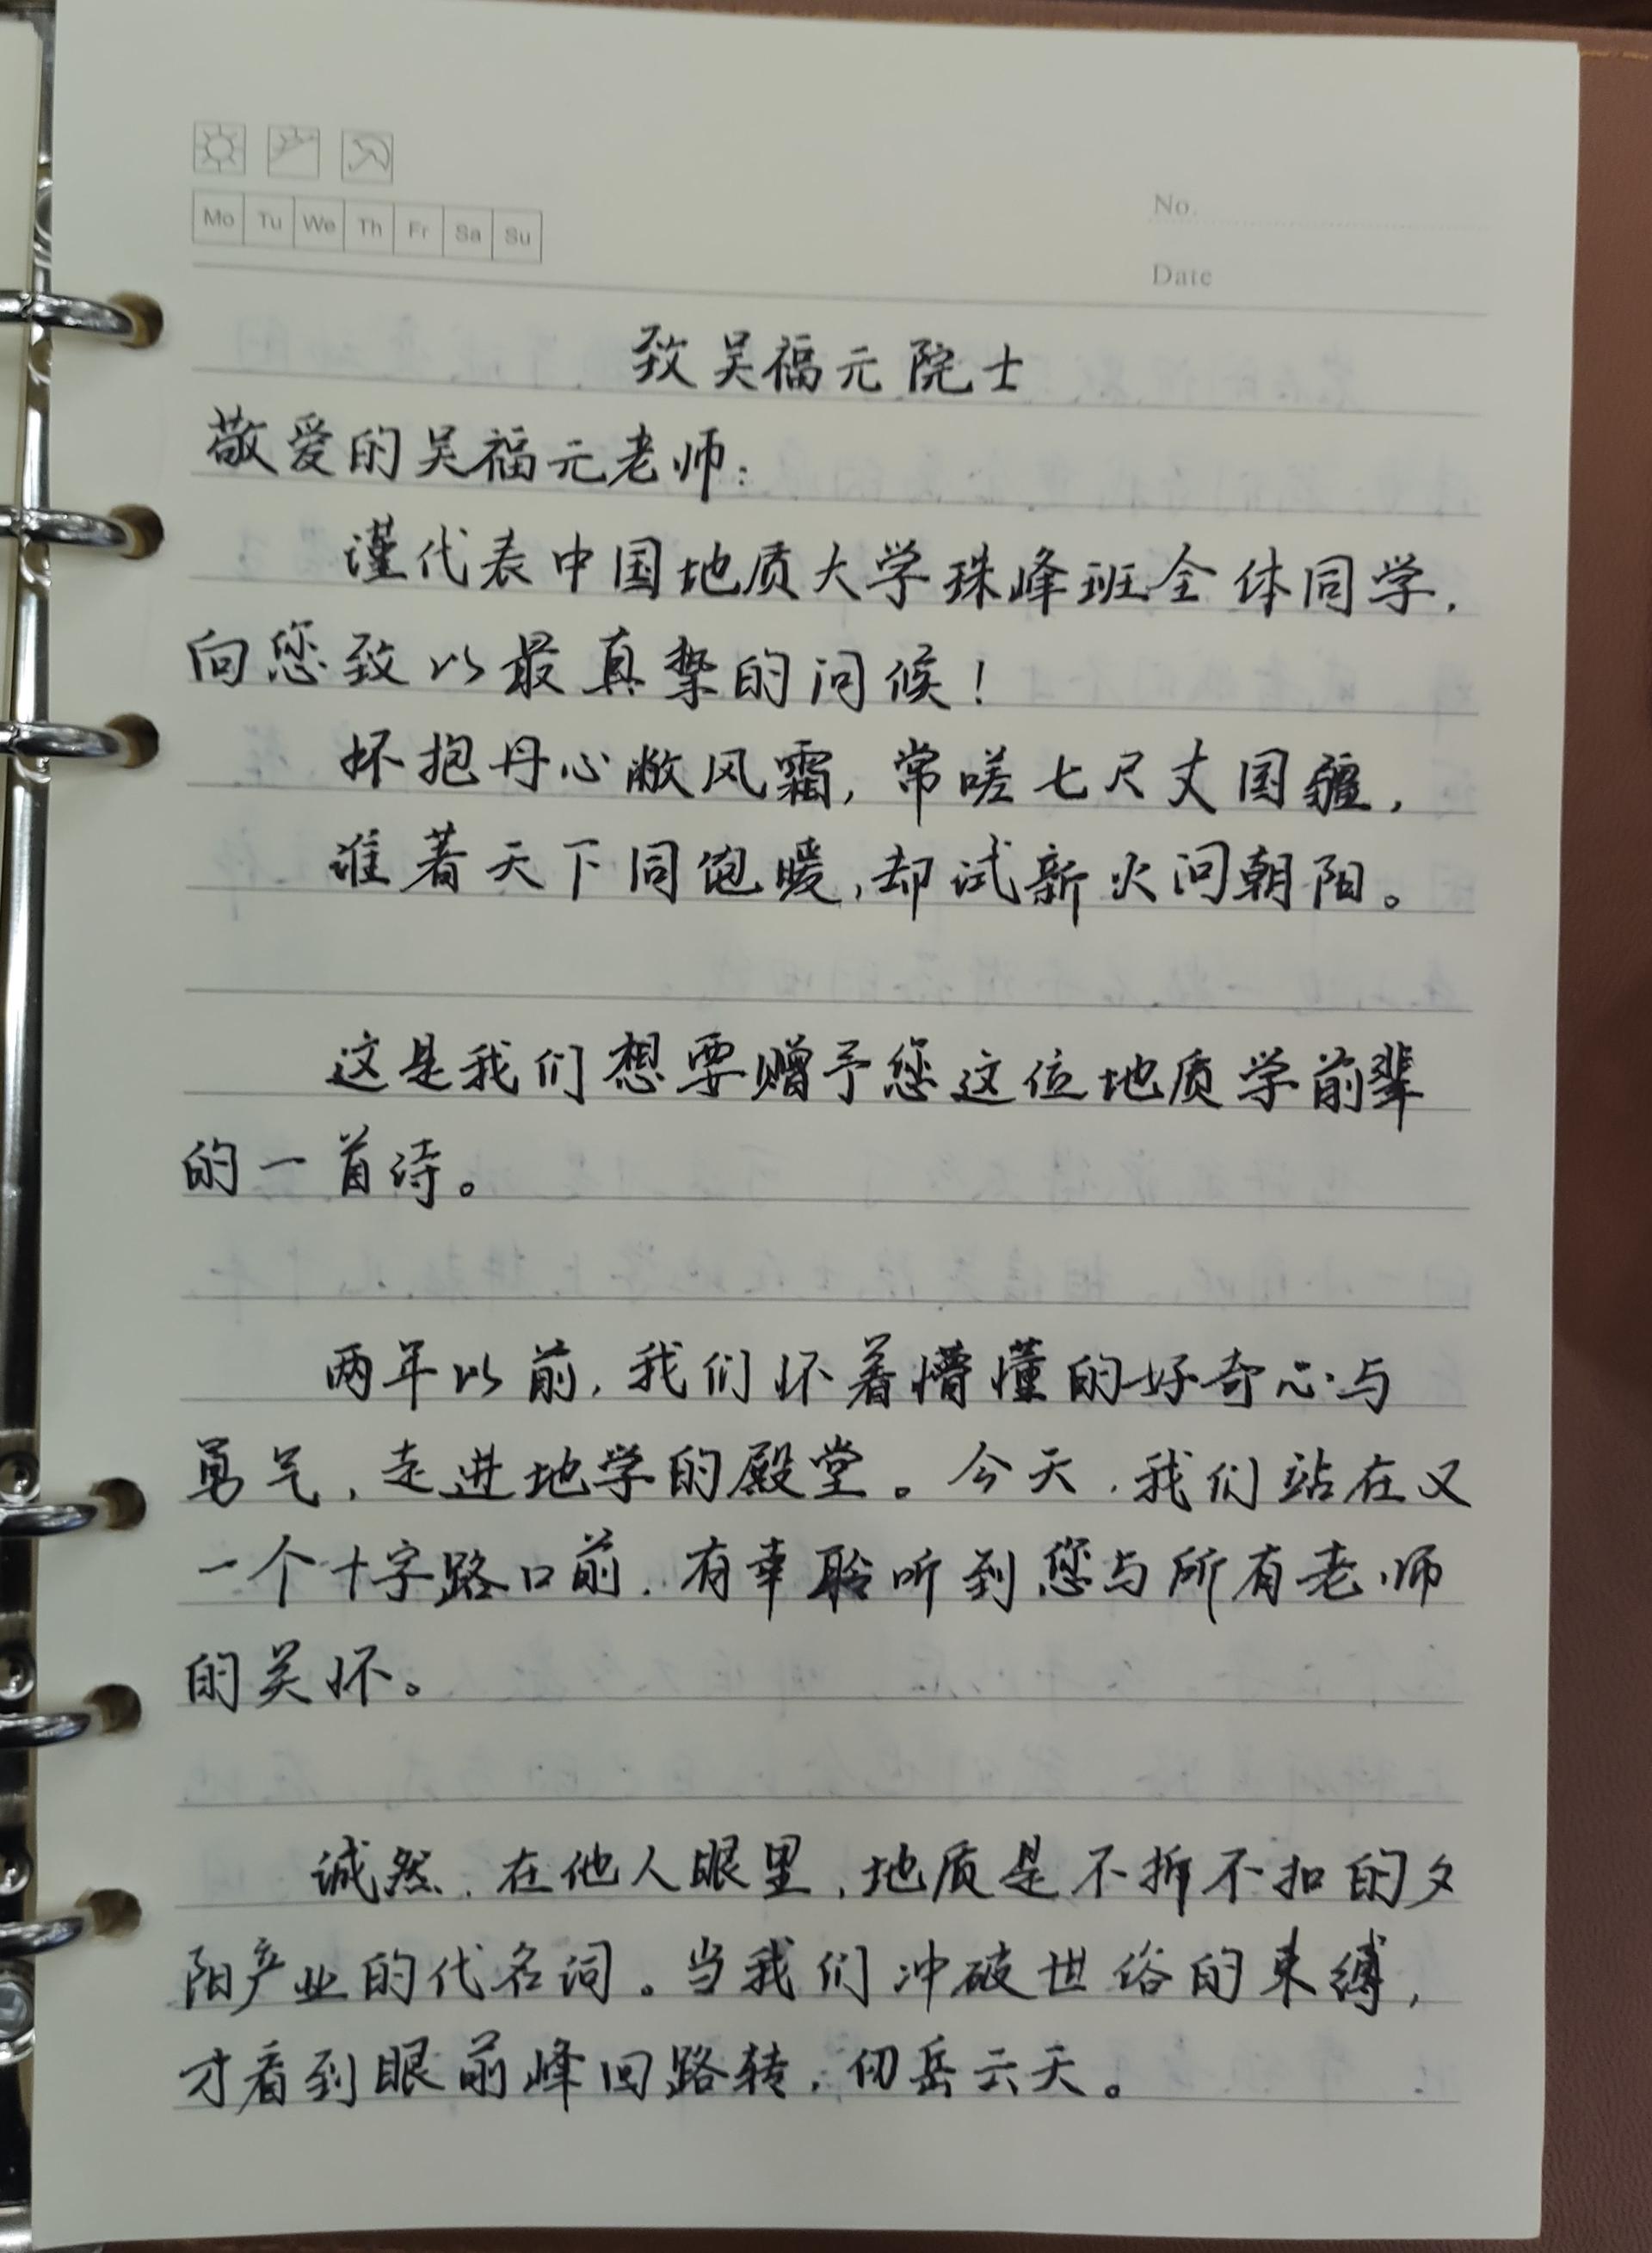 Mo Tu We Th Fr Sa Su
No.
Date
致吴福元院士
敬爱的吴福元老师：
谨代表中国地质大学珠峰班全体同学，
向您致以最真挚的问候！
怀抱丹心敝风霜，常嗟七尺丈国疆，
谁著天下同饱暖，却试新火问朝阳。
这是我们想要赠予您这位地质学前辈
的一首诗。
两年以前，我们怀着懵懂的好奇心与
勇气，走进地学的殿堂。今天，我们站在又
一个十字路口前，有幸聆听到您与所有老师
的关怀。
诚然，在他人眼里，地质是不折不扣的夕
阳产业的代名词。当我们冲破世俗的束缚，
才看到眼前峰回路转，仞岳云天。